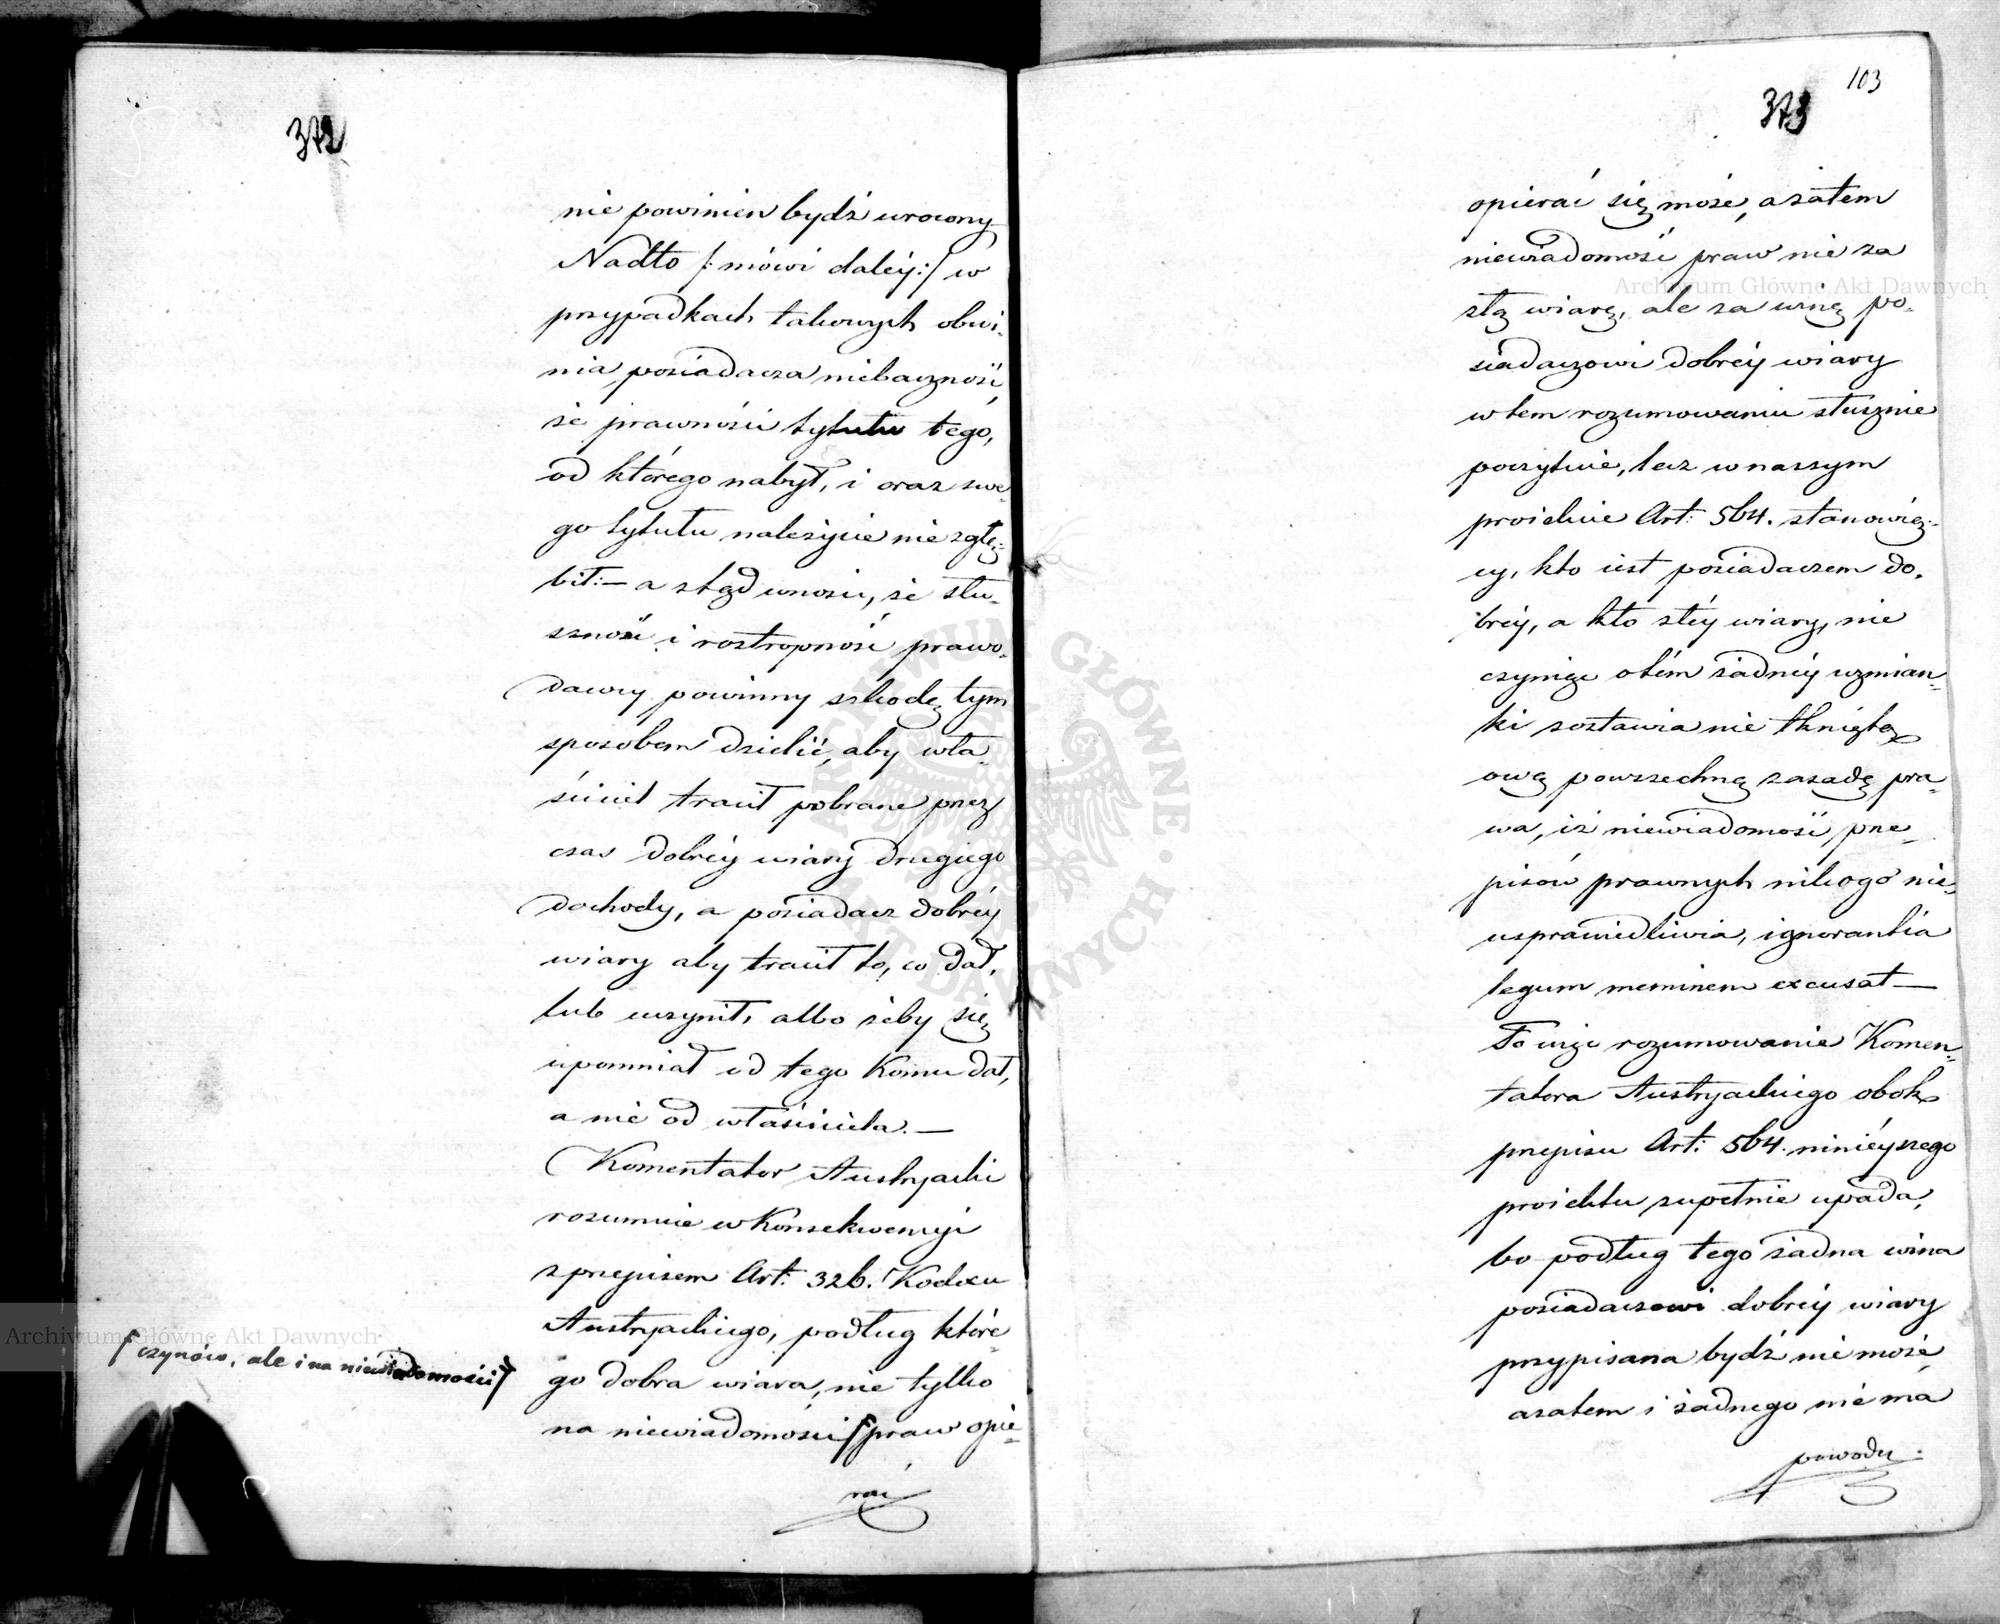 372
nie powinien bydź wrocony
Nadto /: mówi daléy :/ w
przypadkach takowych obwi-
nia posiadacza niebaczność,
że prawności tytułu tégo,
od którego nabył, i oraz swe-
go tytułu należycie nie zgłę-
bił: — a ztąd wnosi, że słu-
szność i rostropność prawo-
dawcy powinny szkodę tym
sposobem dzielić, aby wła-
ściciel tracił pobrane przez
czas dobréy wiary drugiego
dochody, a posiadacz dobréy
wiary aby tracił to, co dał,
lub uczynił, albo żeby się
upomniał od tego komu dał,
a nie od właściciela. —
Komentator Austryacki
rozumuie w Konsekwencyi
z przepisem Art: 326. Kodexu
Austryackiego, podług które-
go dobra wiara, nie tylko
na niewiadomości ʃ praw opie-
rać
ʃ czynów, ale i na niewiadomości ʃ
103
373
opierać się może, a zatem
niewiadomość praw nie za
złą wiarę, ale za winę po-
siadaczowi dobréy wiary
w tem rozumowaniu słusznie
poczytuie, lecz w naszym
proiekcie Art: 564. stanowią-
cy, kto iest posiadaczem do-
bréy, a kto złéy wiary, nie
czyniąc o tém żadnéy wzmian-
ki zostawia nie tkniętą
ową powszechną zasadę pra-
wa, iż niewiadomość prze-
pisów prawnych nikogo nie-
usprawiedliwia, ignorantia
legum neminem excusat —
To więc rozumowanie Komen-
tatora Austryackiego obok
przepisu Art: 564. ninieyszego
proiektu zupełnie upada,
bo podług tego żadna wina
posiadaczowi dobréy wiary
przypisana bydź nie może,
a zatem i żadnego nie ma
powodu
Archiwum Główne Akt Dawnych
Archiwum Główne Akt Dawnych
ARCHIWUM GŁÓWNE · AKT DAWNYCH ·